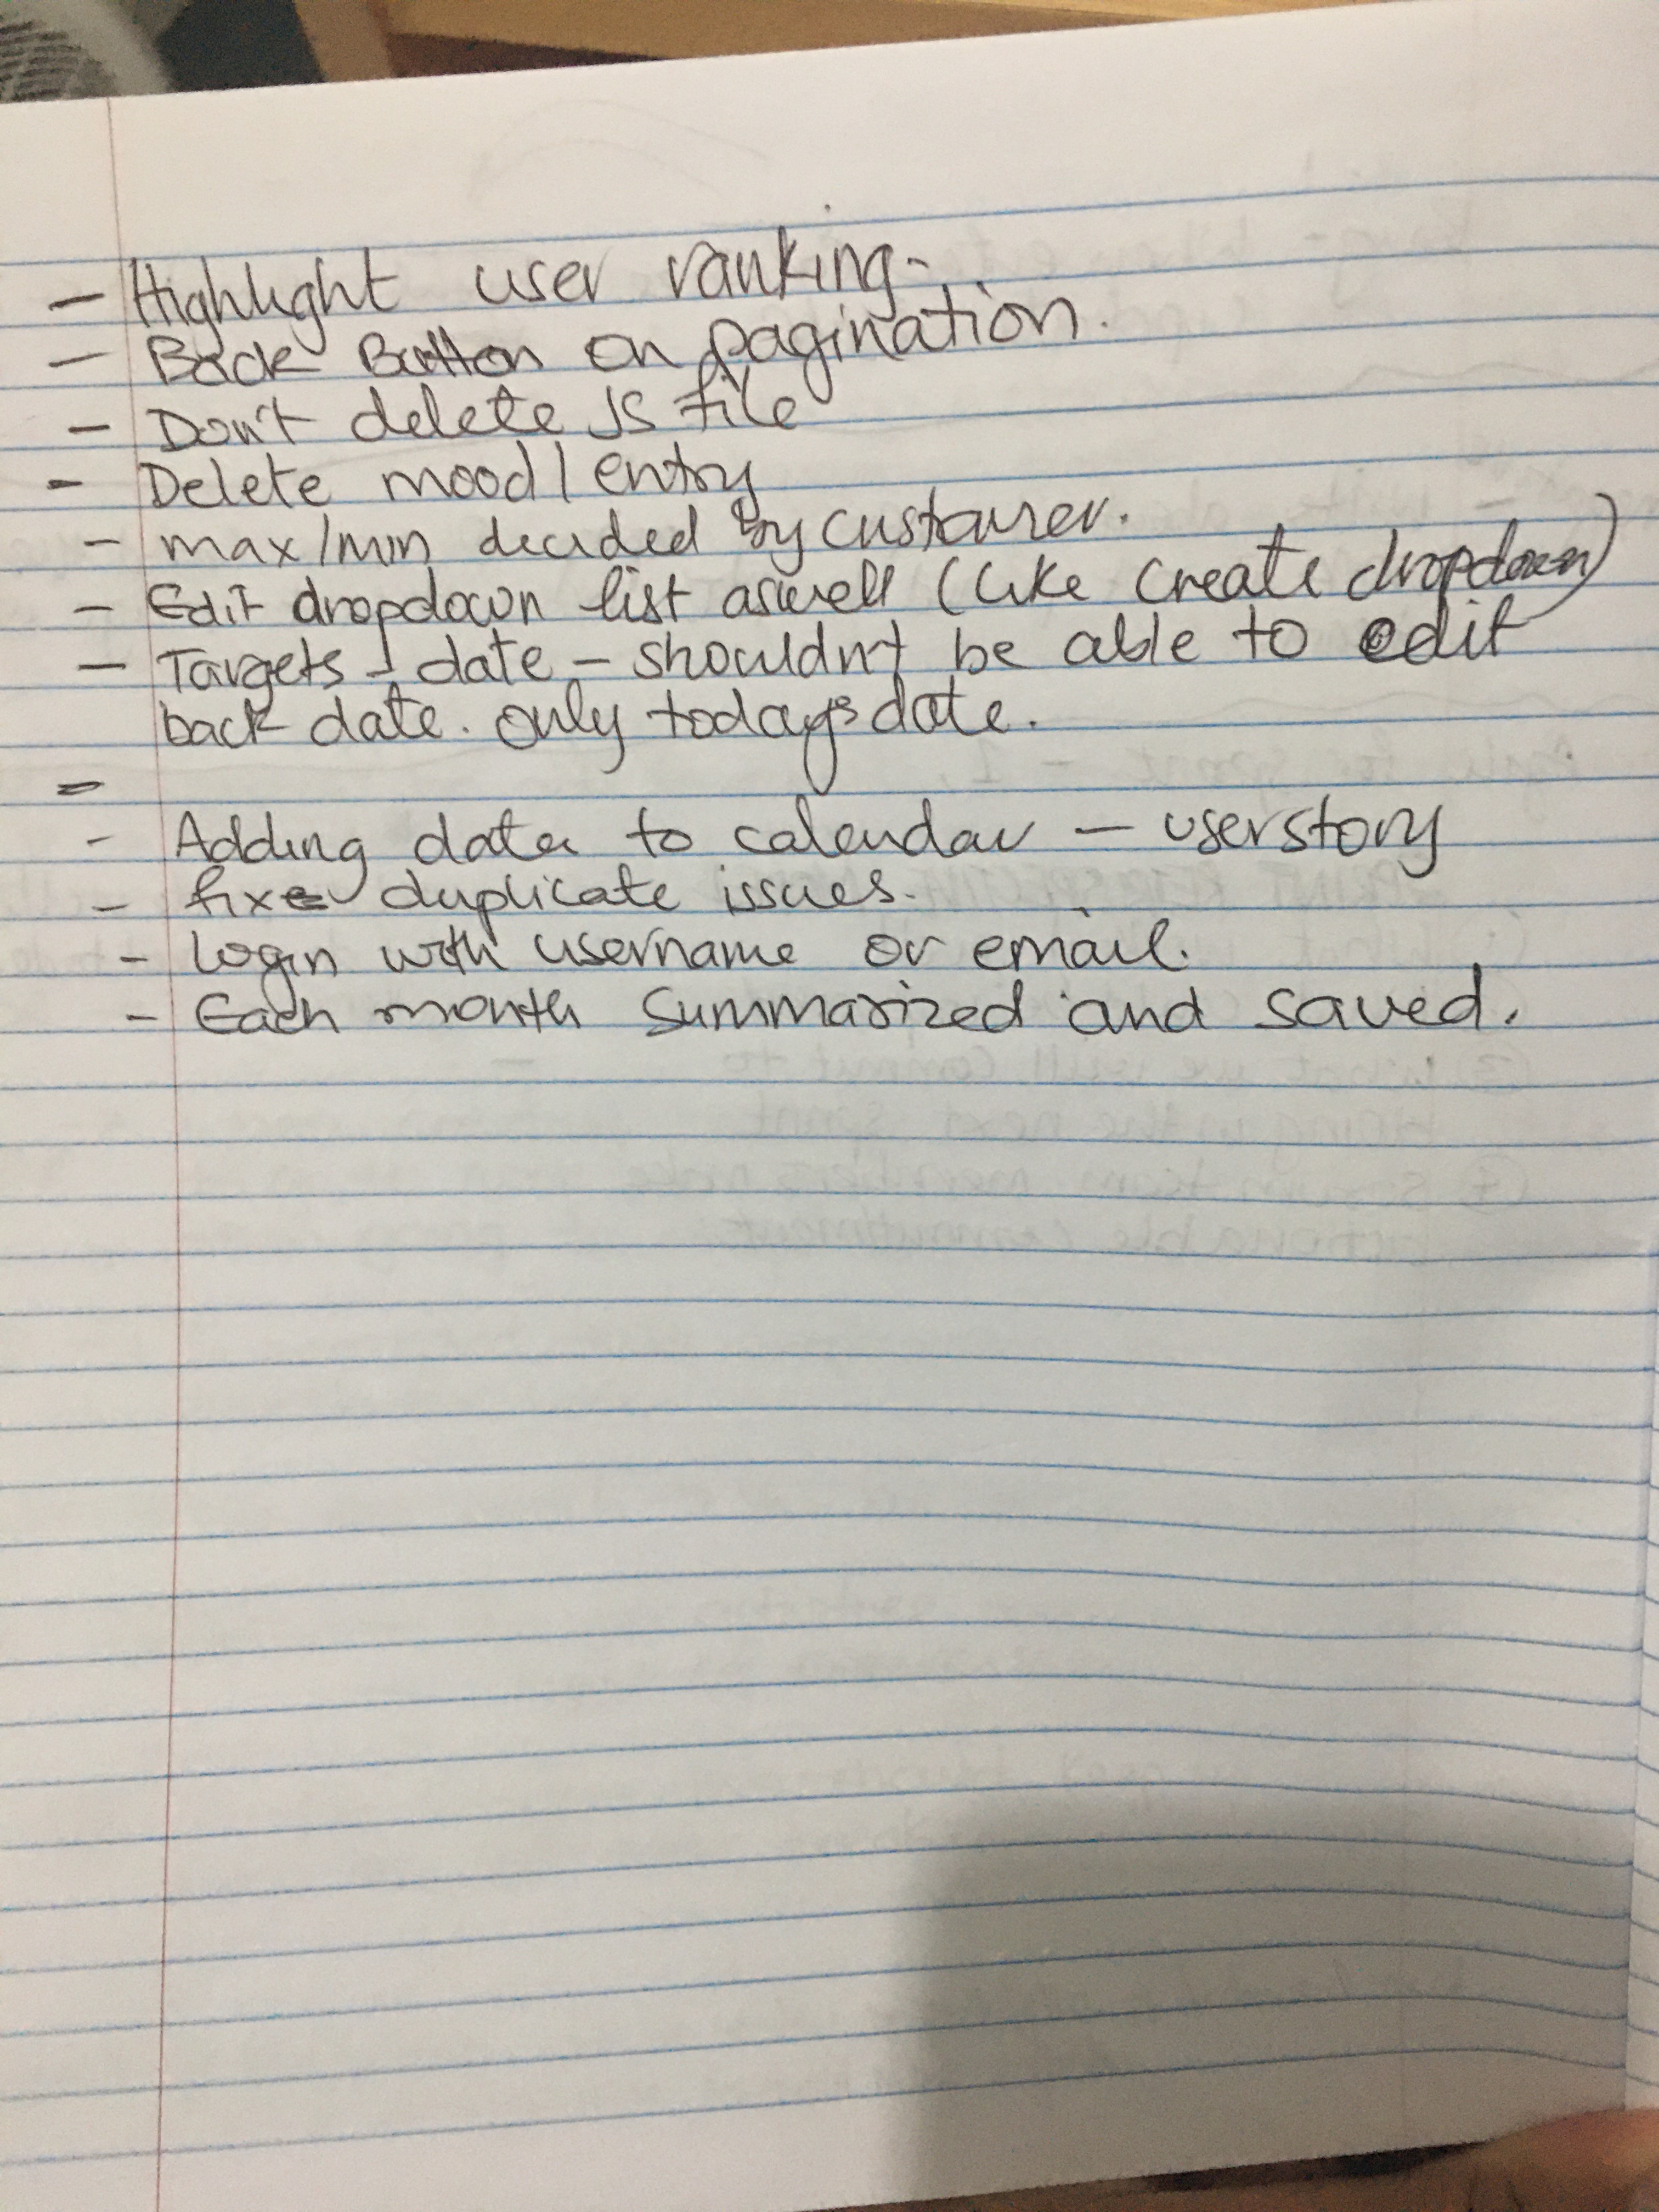 - Highlight user ranking.
- Back Button on pagination.
- Don't delete JS file
- Delete mood / entry
- max/min decided by customer.
- Edit dropdown list aswell (like create dropdown)
- Targets - date - shouldn't be able to edit
back date. only todays date.
-
- Adding data to calendar - userstory
- fix duplicate issues.
- login with username or email.
- Each month summarized and saved.